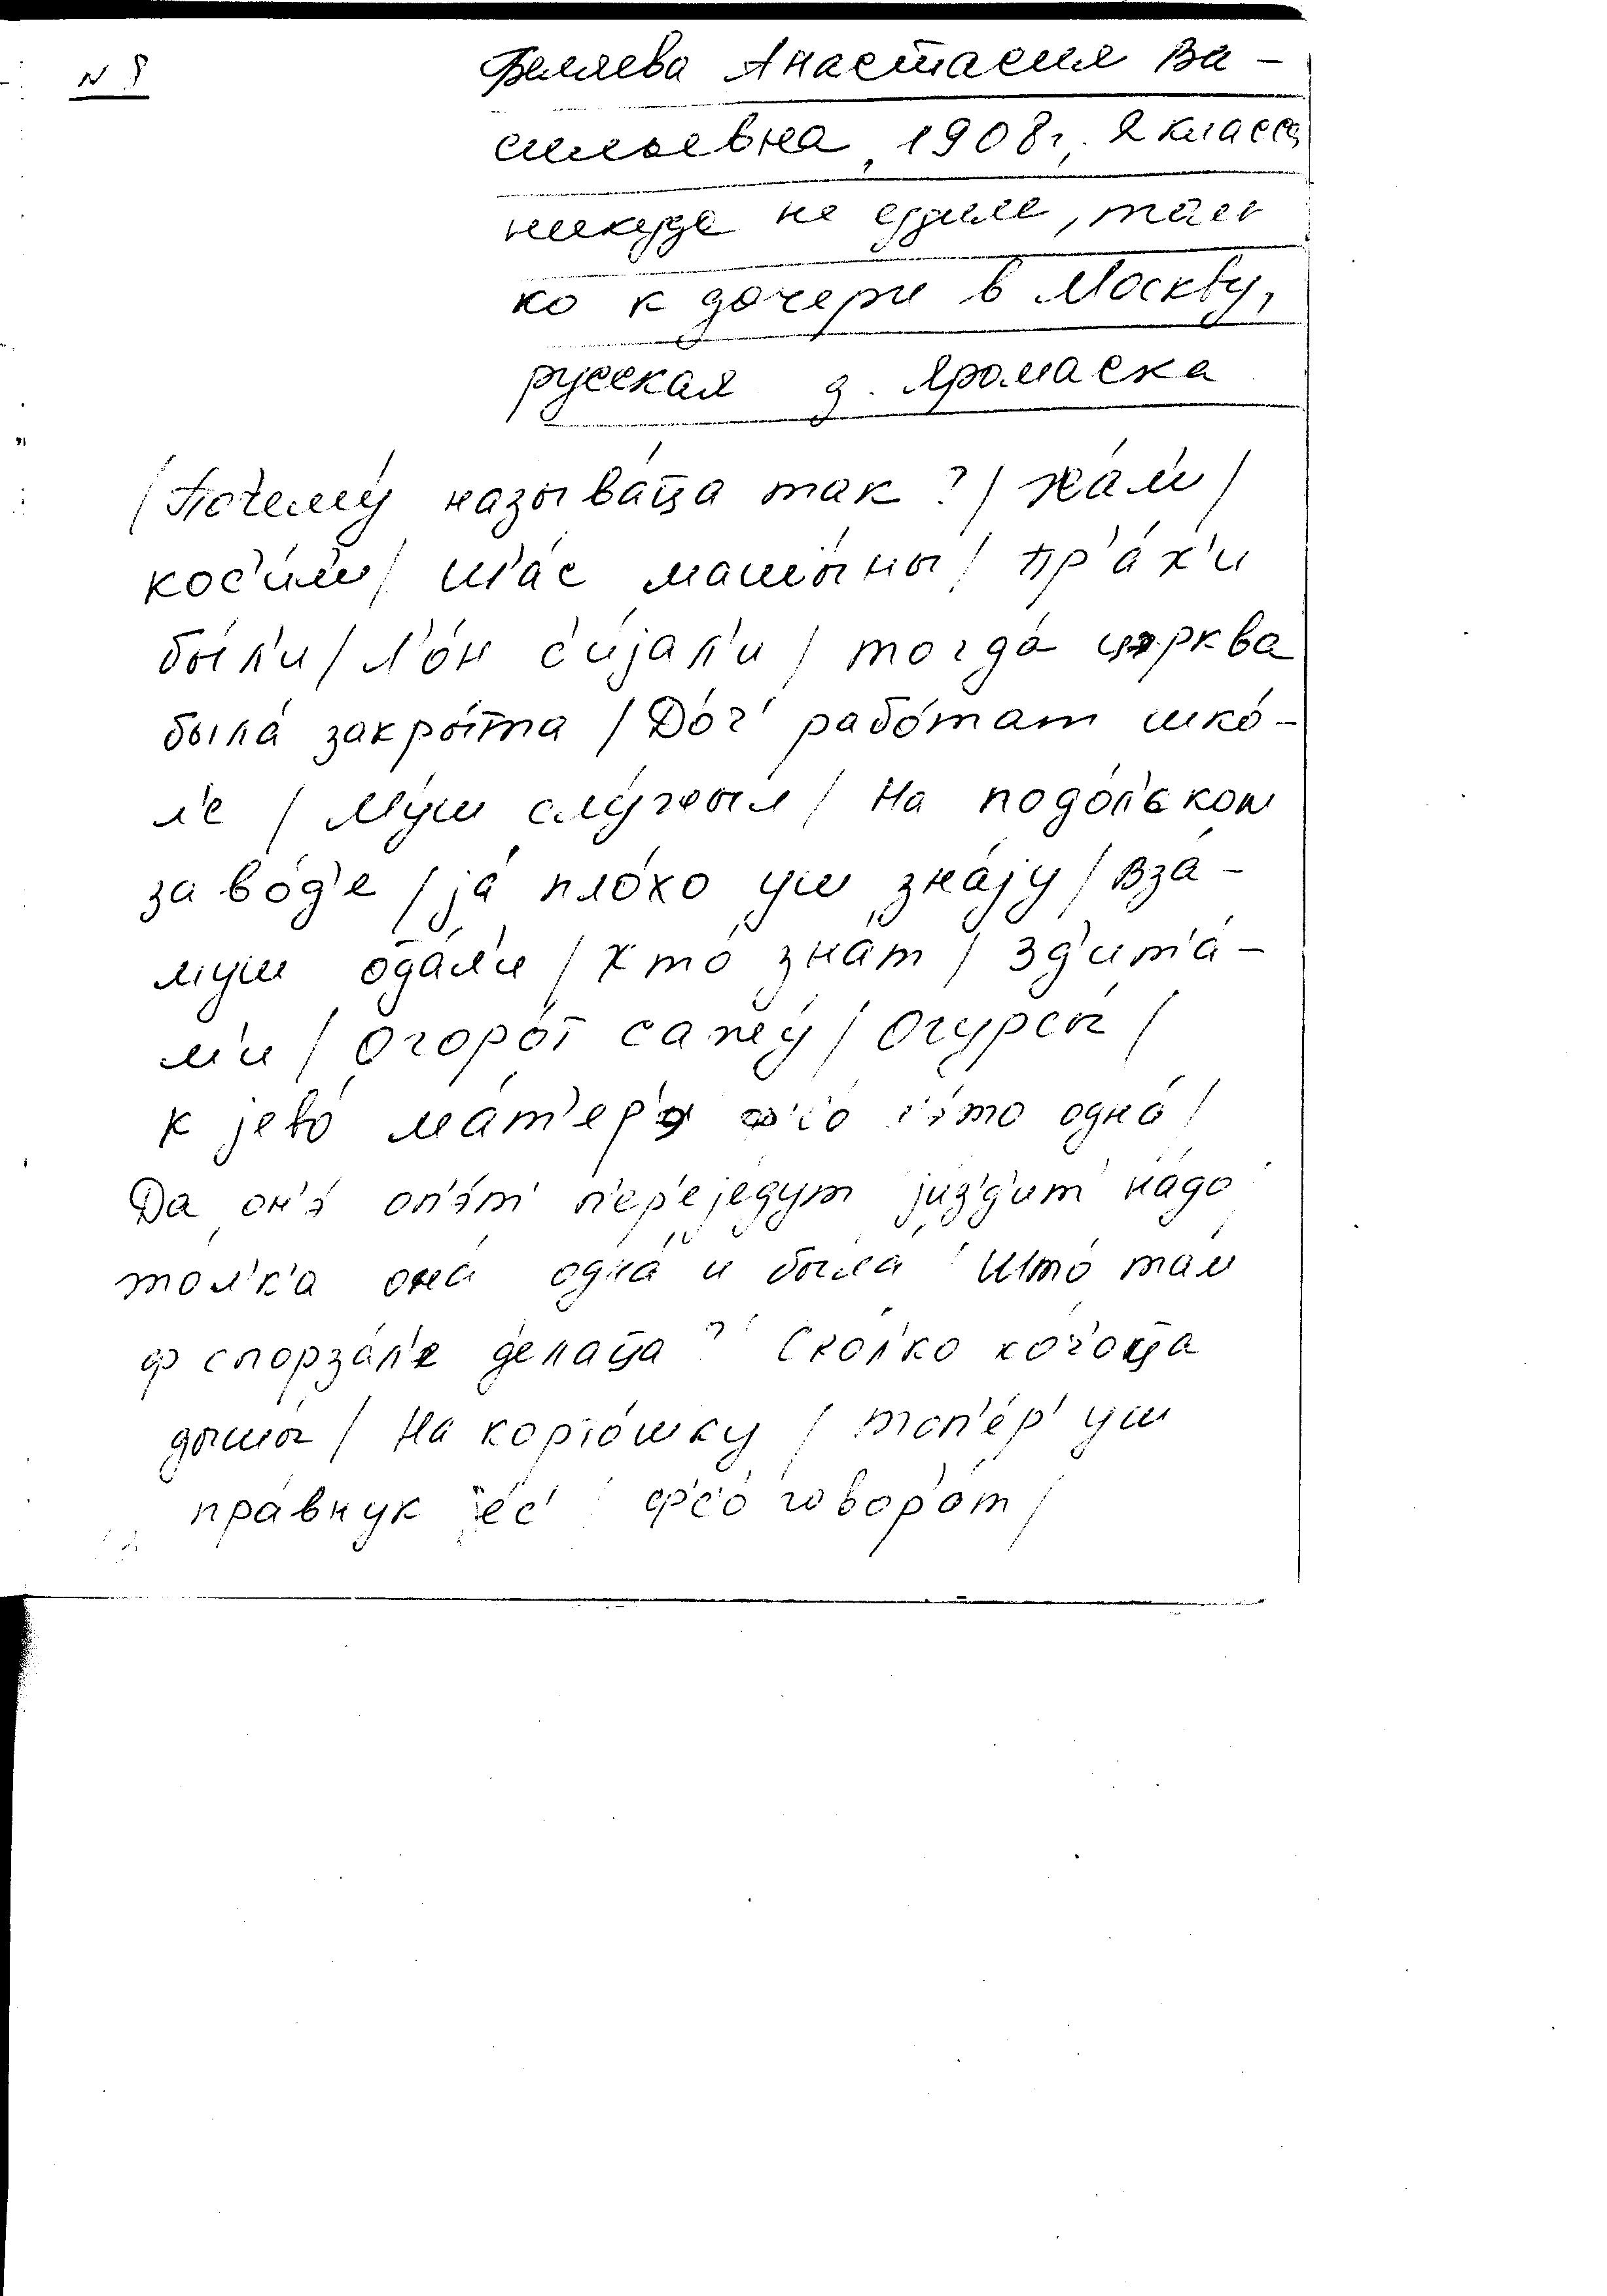 N 8
Беляева Анастасия Ва-
сильевна, 1908г, 2 класса,
никуда не ездила, толь
ко к дочери в Москву,
русская д. Яромаска
/Почему́ называ́ц̅а так?/ жа́ли/
кос'и́ли/ ш'а́с машы́ны/ пр'а́х'и
бы́л'и/ л'о́н с'и́јал'и/ тогда́ цэрква
была́ закры́та/ До́ч' рабо́тат шко́-
л'е/ Му́ш слу́жыл/ На подо́л'ском
заво́д'е/ја́ пло́хо уш зна́ју/ вза́-
муш од̅а́л'и/ хто́ зна́т/ зд'ит'а́-
м'и/ Огоро́т сажу́/ Огурсы́/
к јево́ ма́т'ер'э ф'с'о́ одна́/
Да он'э́ оп'э́т' п'ер'еједут јиз'д'ит' на́до
тол'к'а она́ одна́ и была́ Што́ там
ф спорзал'е де́лац̅а? Ско́л'ко хо́ч'оц̅а
дышы́/ На карто́шку/ топ'е́р' уш
пра́внук је́с' ф'с'о́ говор'а́т/